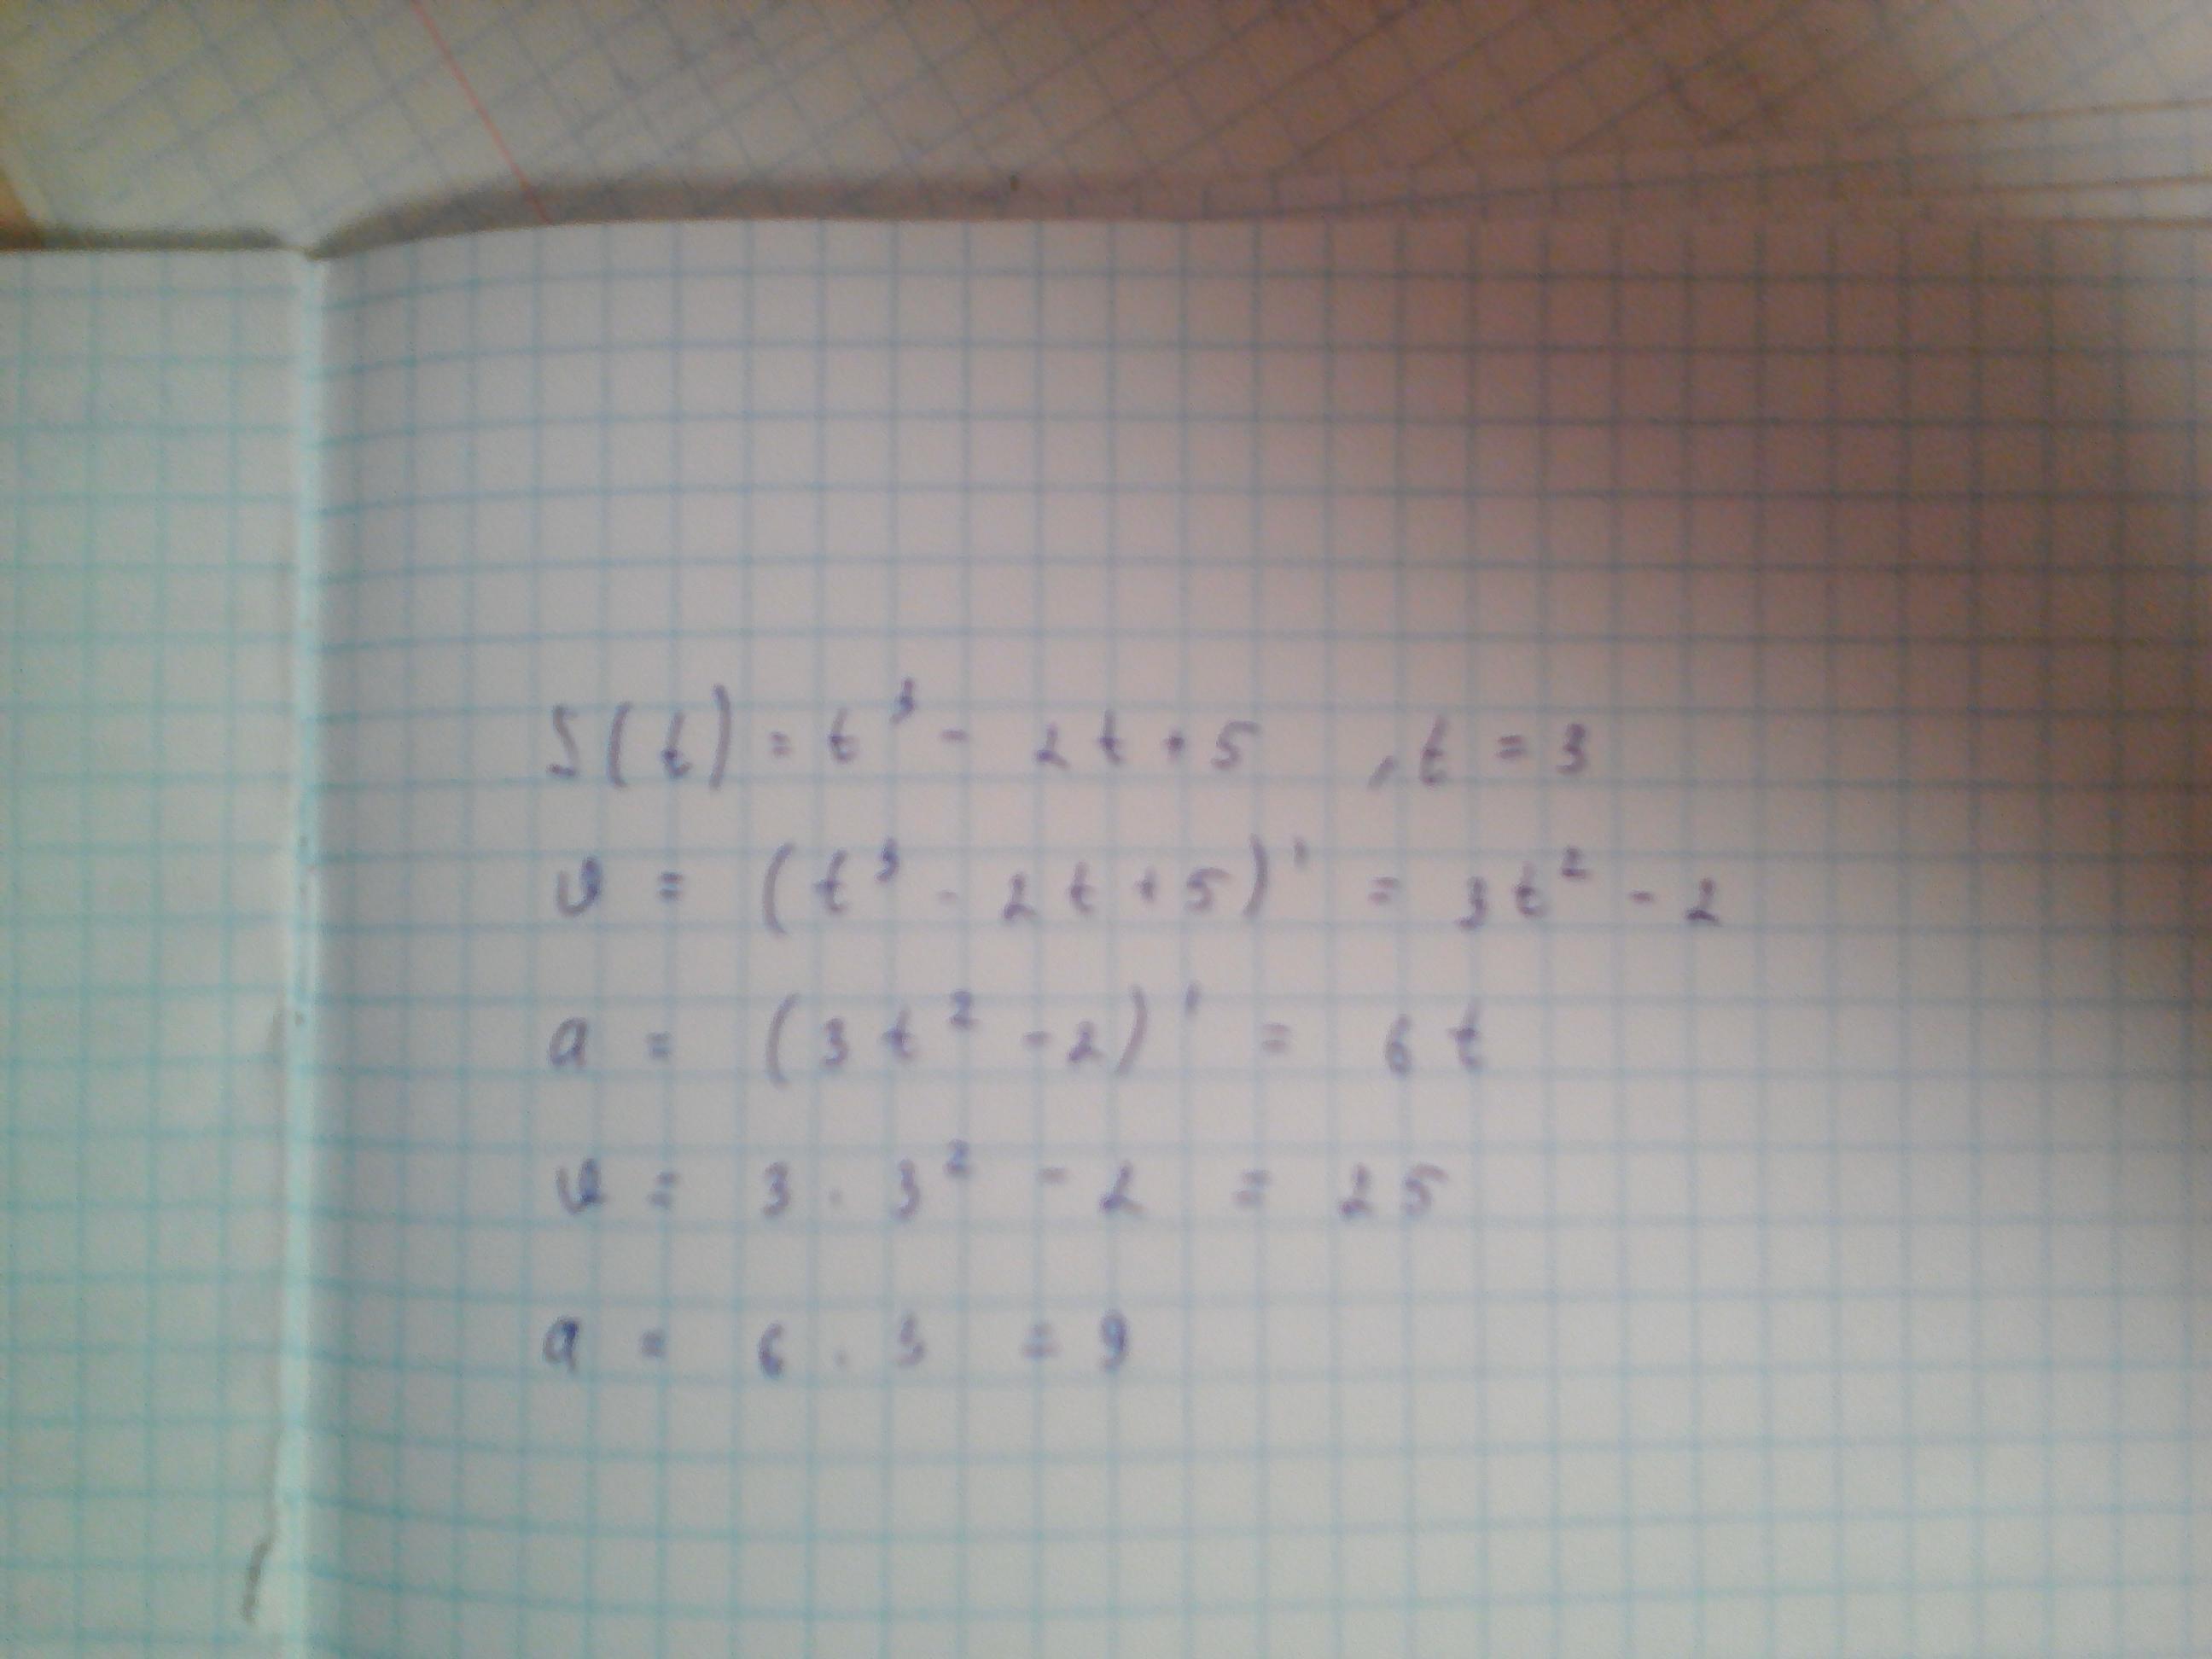 S(t) = t³ - 2t + 5 , t = 3
υ = (t³ - 2t + 5)' = 3t² - 2
a = (3t² - 2)' = 6t
υ = 3 · 3² - 2 = 25
a = 6 · 3 = 9